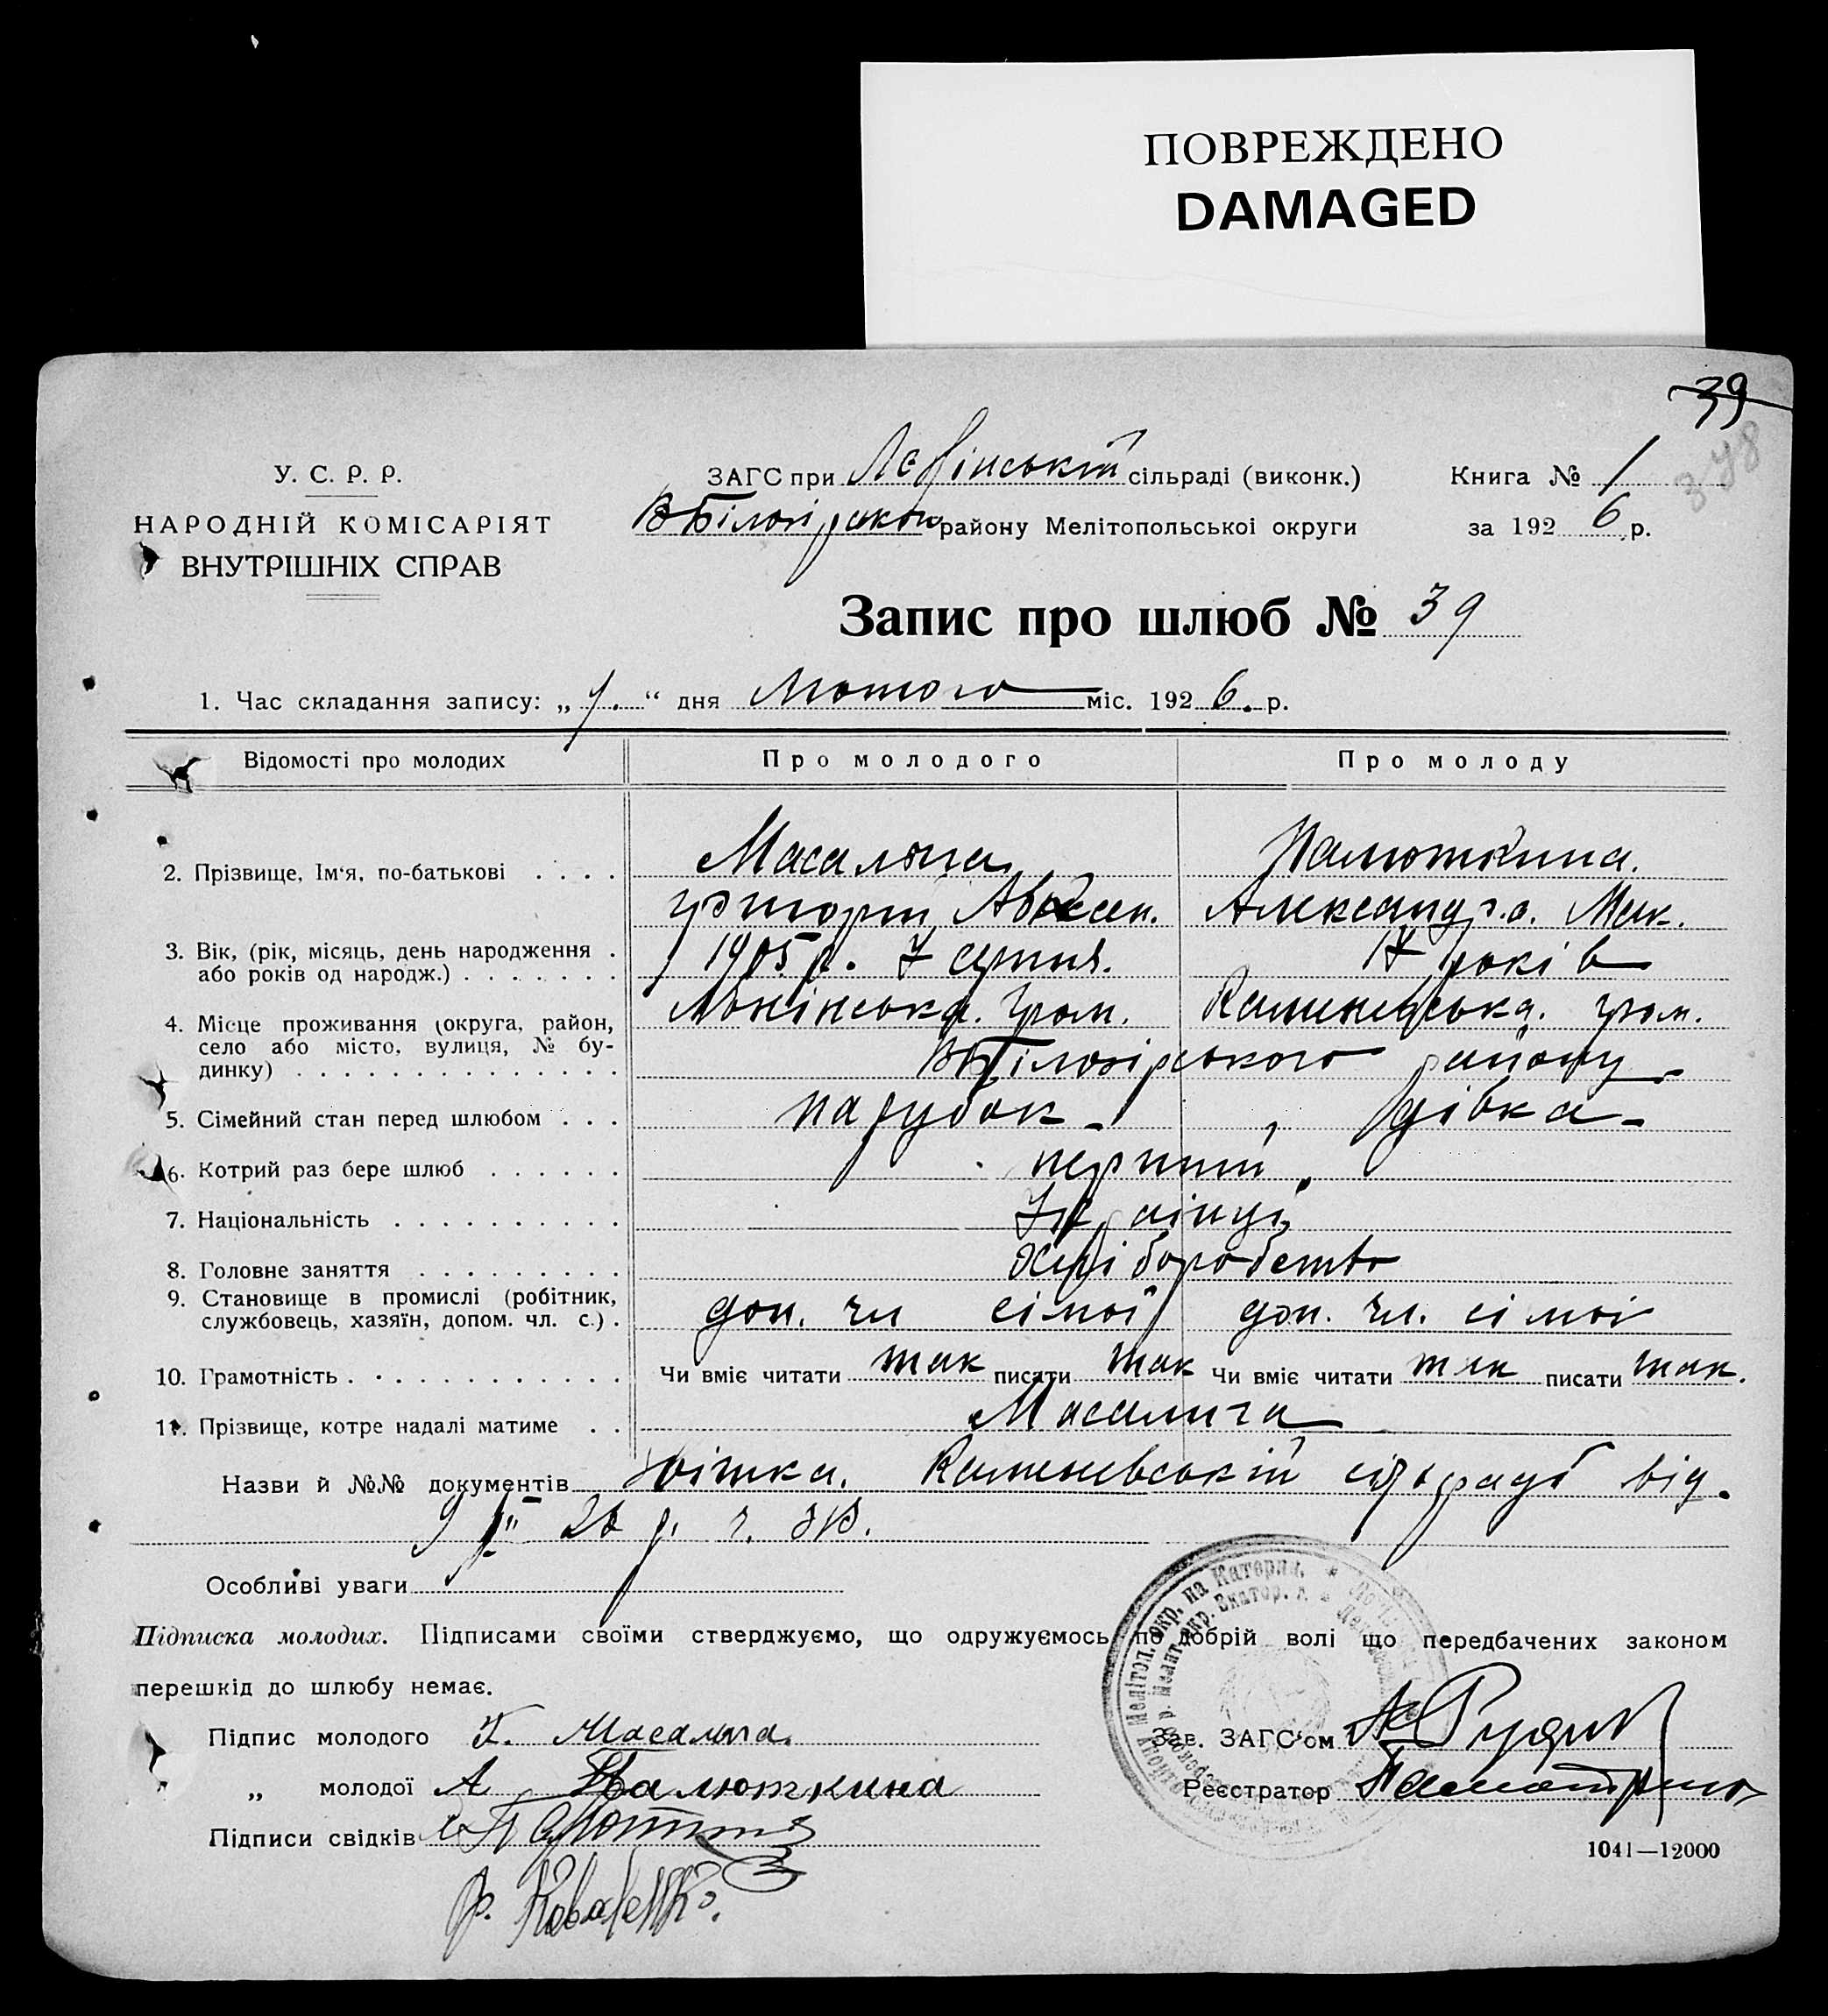 ПОВРЕЖДЕНО
DAMAGED
39
378
У. С. Р. Р.
НАРОДНІЙ КОМІСАРІЯТ
ВНУТРІШНІХ СПРАВ
ЗАГС при сільраді (виконк.)
В Білозірском району Мелітопольської округи
Книга № 1
за 1926 р.
Запис про шлюб № 39
1. Час складання запису: „ “ дня Лютого міс. 1926. р.
Відомості про молодих
Про молодого
Про молоду
2. Прізвище, Ім‘я, по-батькові . . . .
Масалыга
Палюткина.
Александра. Мак.
3. Вік, (рік, місяць, день народження .
або років од народж.) . . . . . . .
1905 р. 7 серпня.
17 років
4. Місце проживання (округа, район,
село або місто, вулиця, № бу-
динку) . . . . . . . . . . . . . .
гром.
Каменевська. гром.
ВБілозірського району
5. Сімейний стан перед шлюбом . . .
парубок -
дівка -
6. Котрий раз бере шлюб . . . . . .
перший
7. Національність . . . . . . . . . .
Українці
8. Головне заняття . . . . . . . . .
Хліборобство
9. Становище в промислі (робітник,
службовець, хазяїн, допом. чл. с.) .
доп. чл сімої
доп. чл. сімоі
10. Грамотність . . . . . . . . . . . .
Чи вміє читати так писати так
Чи вміє читати так писати так.
11. Прізвище, котре надалі матиме . .
Масалыга
Назви й №№ документів Каменевській сільраді від.
Особливі уваги
Підписка молодих. Підписами своїми стверджуємо, що одружуємось по добрій волі що передбачених законом
перешкід до шлюбу немає.
Підпис молодого Г. Масалыга.
„ молодої А Палюткина
Підписи свідків
Ф. Коваленко.
Зав. ЗАГС‘ом
Реєстратор
1041—12000